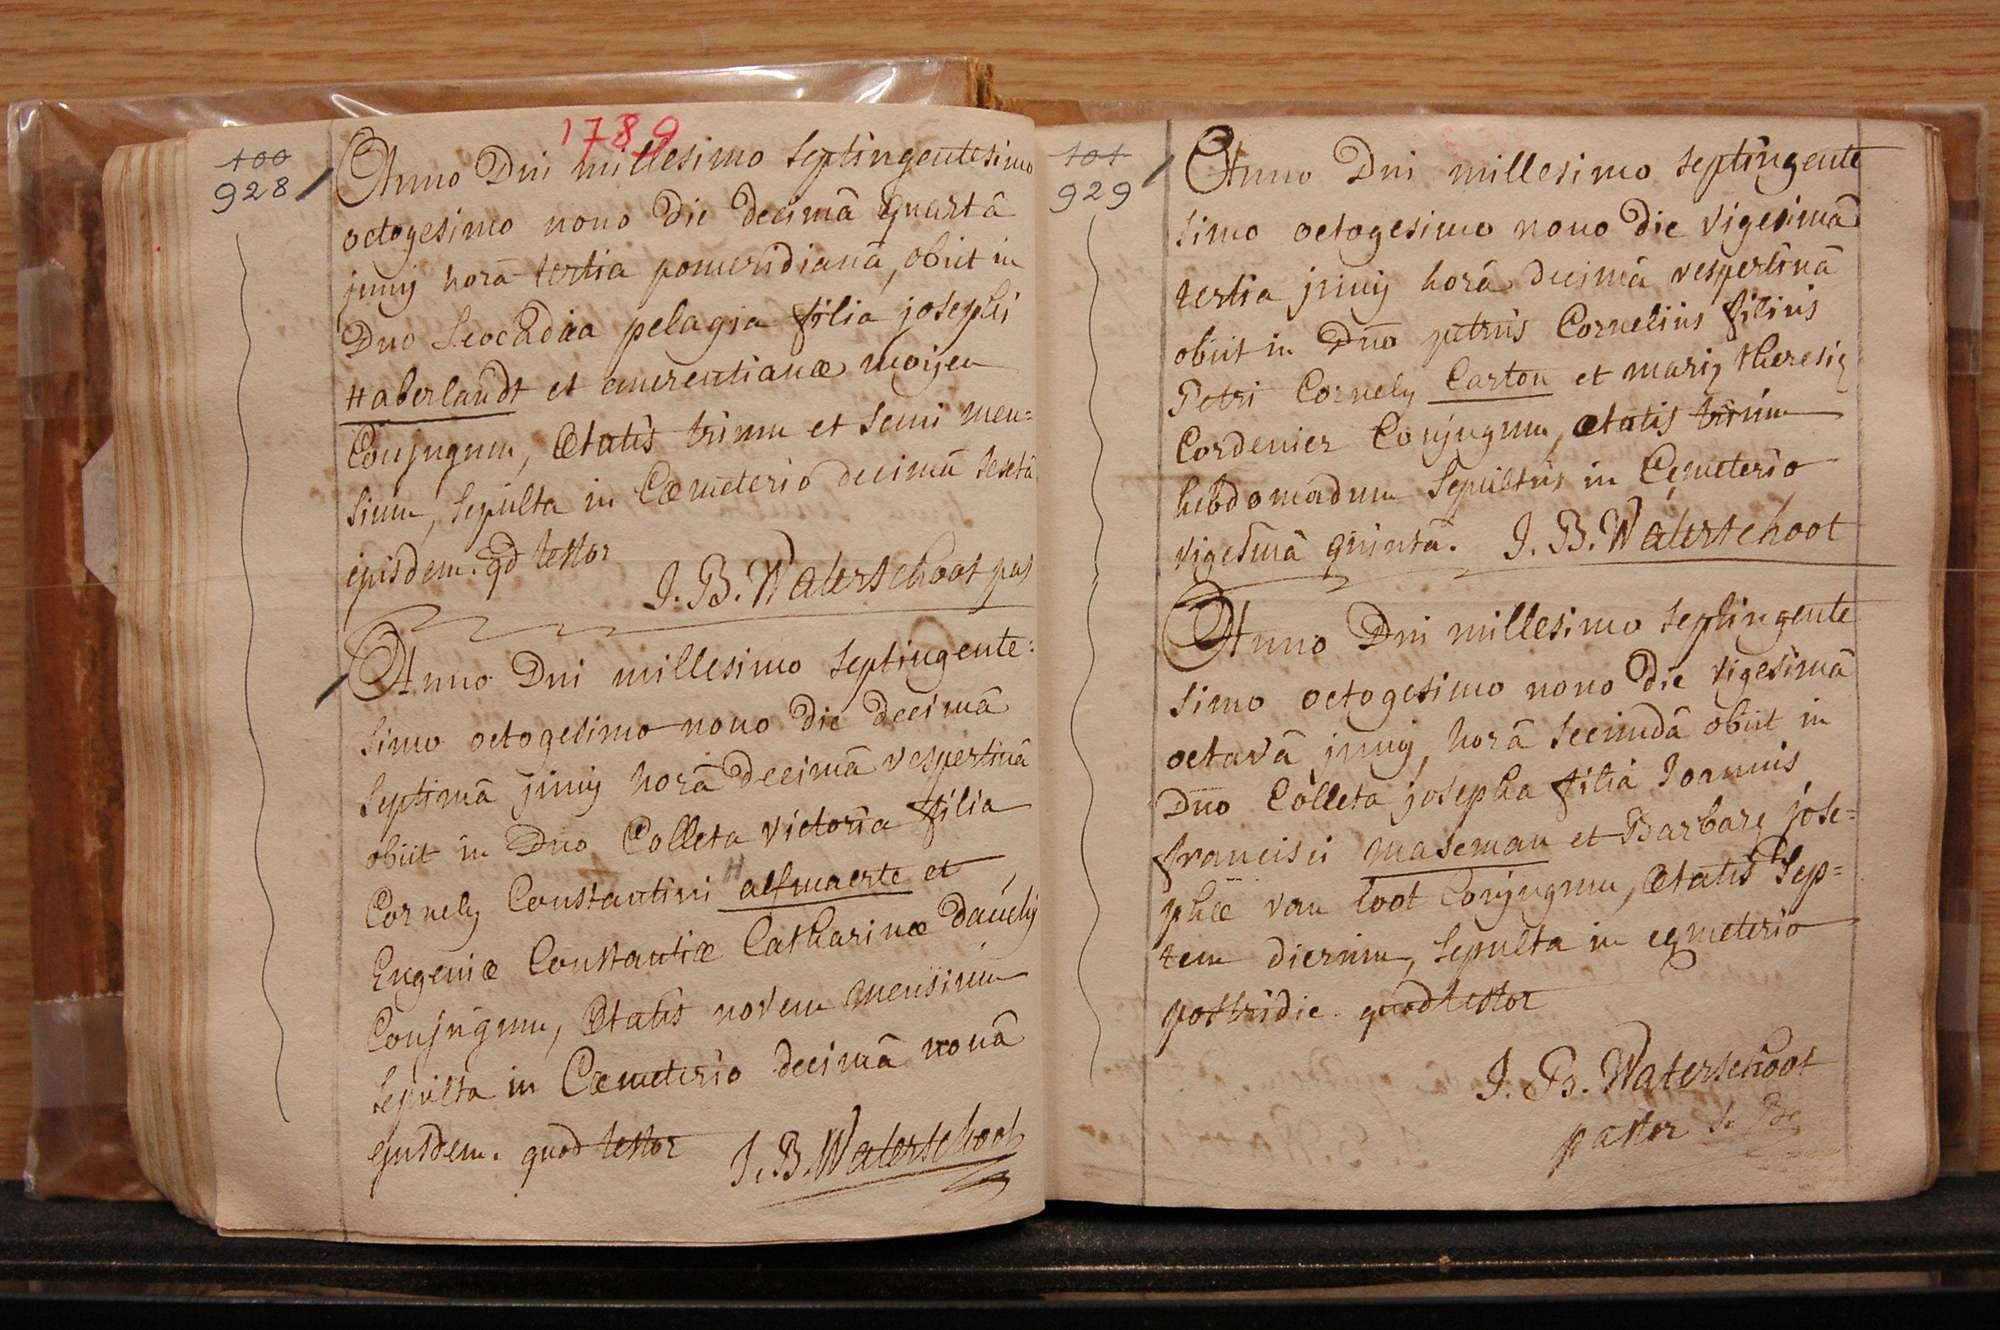 1789
100
928
Anno Dni millesimo septingentesimo
octogesimo nono die decimâ quartâ
junij horâ tertia pomeridianâ, obiit in
Dno Leocadiaa pelagia filia josephi
Haberlandt et emerentianæ moijen
Conjugum, Ætatis trium et semi men=
sium, sepulta in Cæmeterio decimâ sextâ
ejusdem. qd testor
J. B. Waterschoot pas
Anno Dni millesimo septingente=
simo octogesimo nono die decimâ
septimâ junij horâ decimâ vespertinâ
obiit in Dno Colleta victoria filia
Cornelij Constantini aelmaerte et
Eugeniæ Constantiæ Catharinæ
Conjugum, Ætatis novem mensium
sepulta in Cæmeterio decimâ nonâ
ejusdem. quod testor J. B. Waterschoot
101
929
Anno Dni millesimo septingente
simo octogesimo nono die vigesimâ
tertia junij horâ decimâ vespertinâ
obiit in Dno petrus Cornelius filius
Petri Cornelij Carton et mariȩ theresiȩ
Cordenier Conjugum, ætatis trium
hebdomadum sepultus in Cȩmeterio
vigesimâ quintâ. J. B. Waterschoot
Anno Dni millesimo septingente
simo octogesimo nono die vigesimâ
octavâ junij, horâ secundâ obiit in
Dno Colleta josepha filia Joannis
francisci maseman et Barbarȩ jose=
phæ van loot Conjugum, Ætatis sep=
tem dierum, sepulta in cȩmeterio
postridie. quod testor
J. B. Waterschoot
pastor